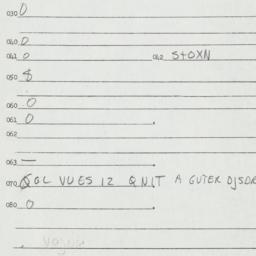 030 0
040 0
041 0 042 STOXN
050 8
060 0
061 0
062
063 —
070 QGL VUES IZ QNIT A GUTEX DJSDR
080 0